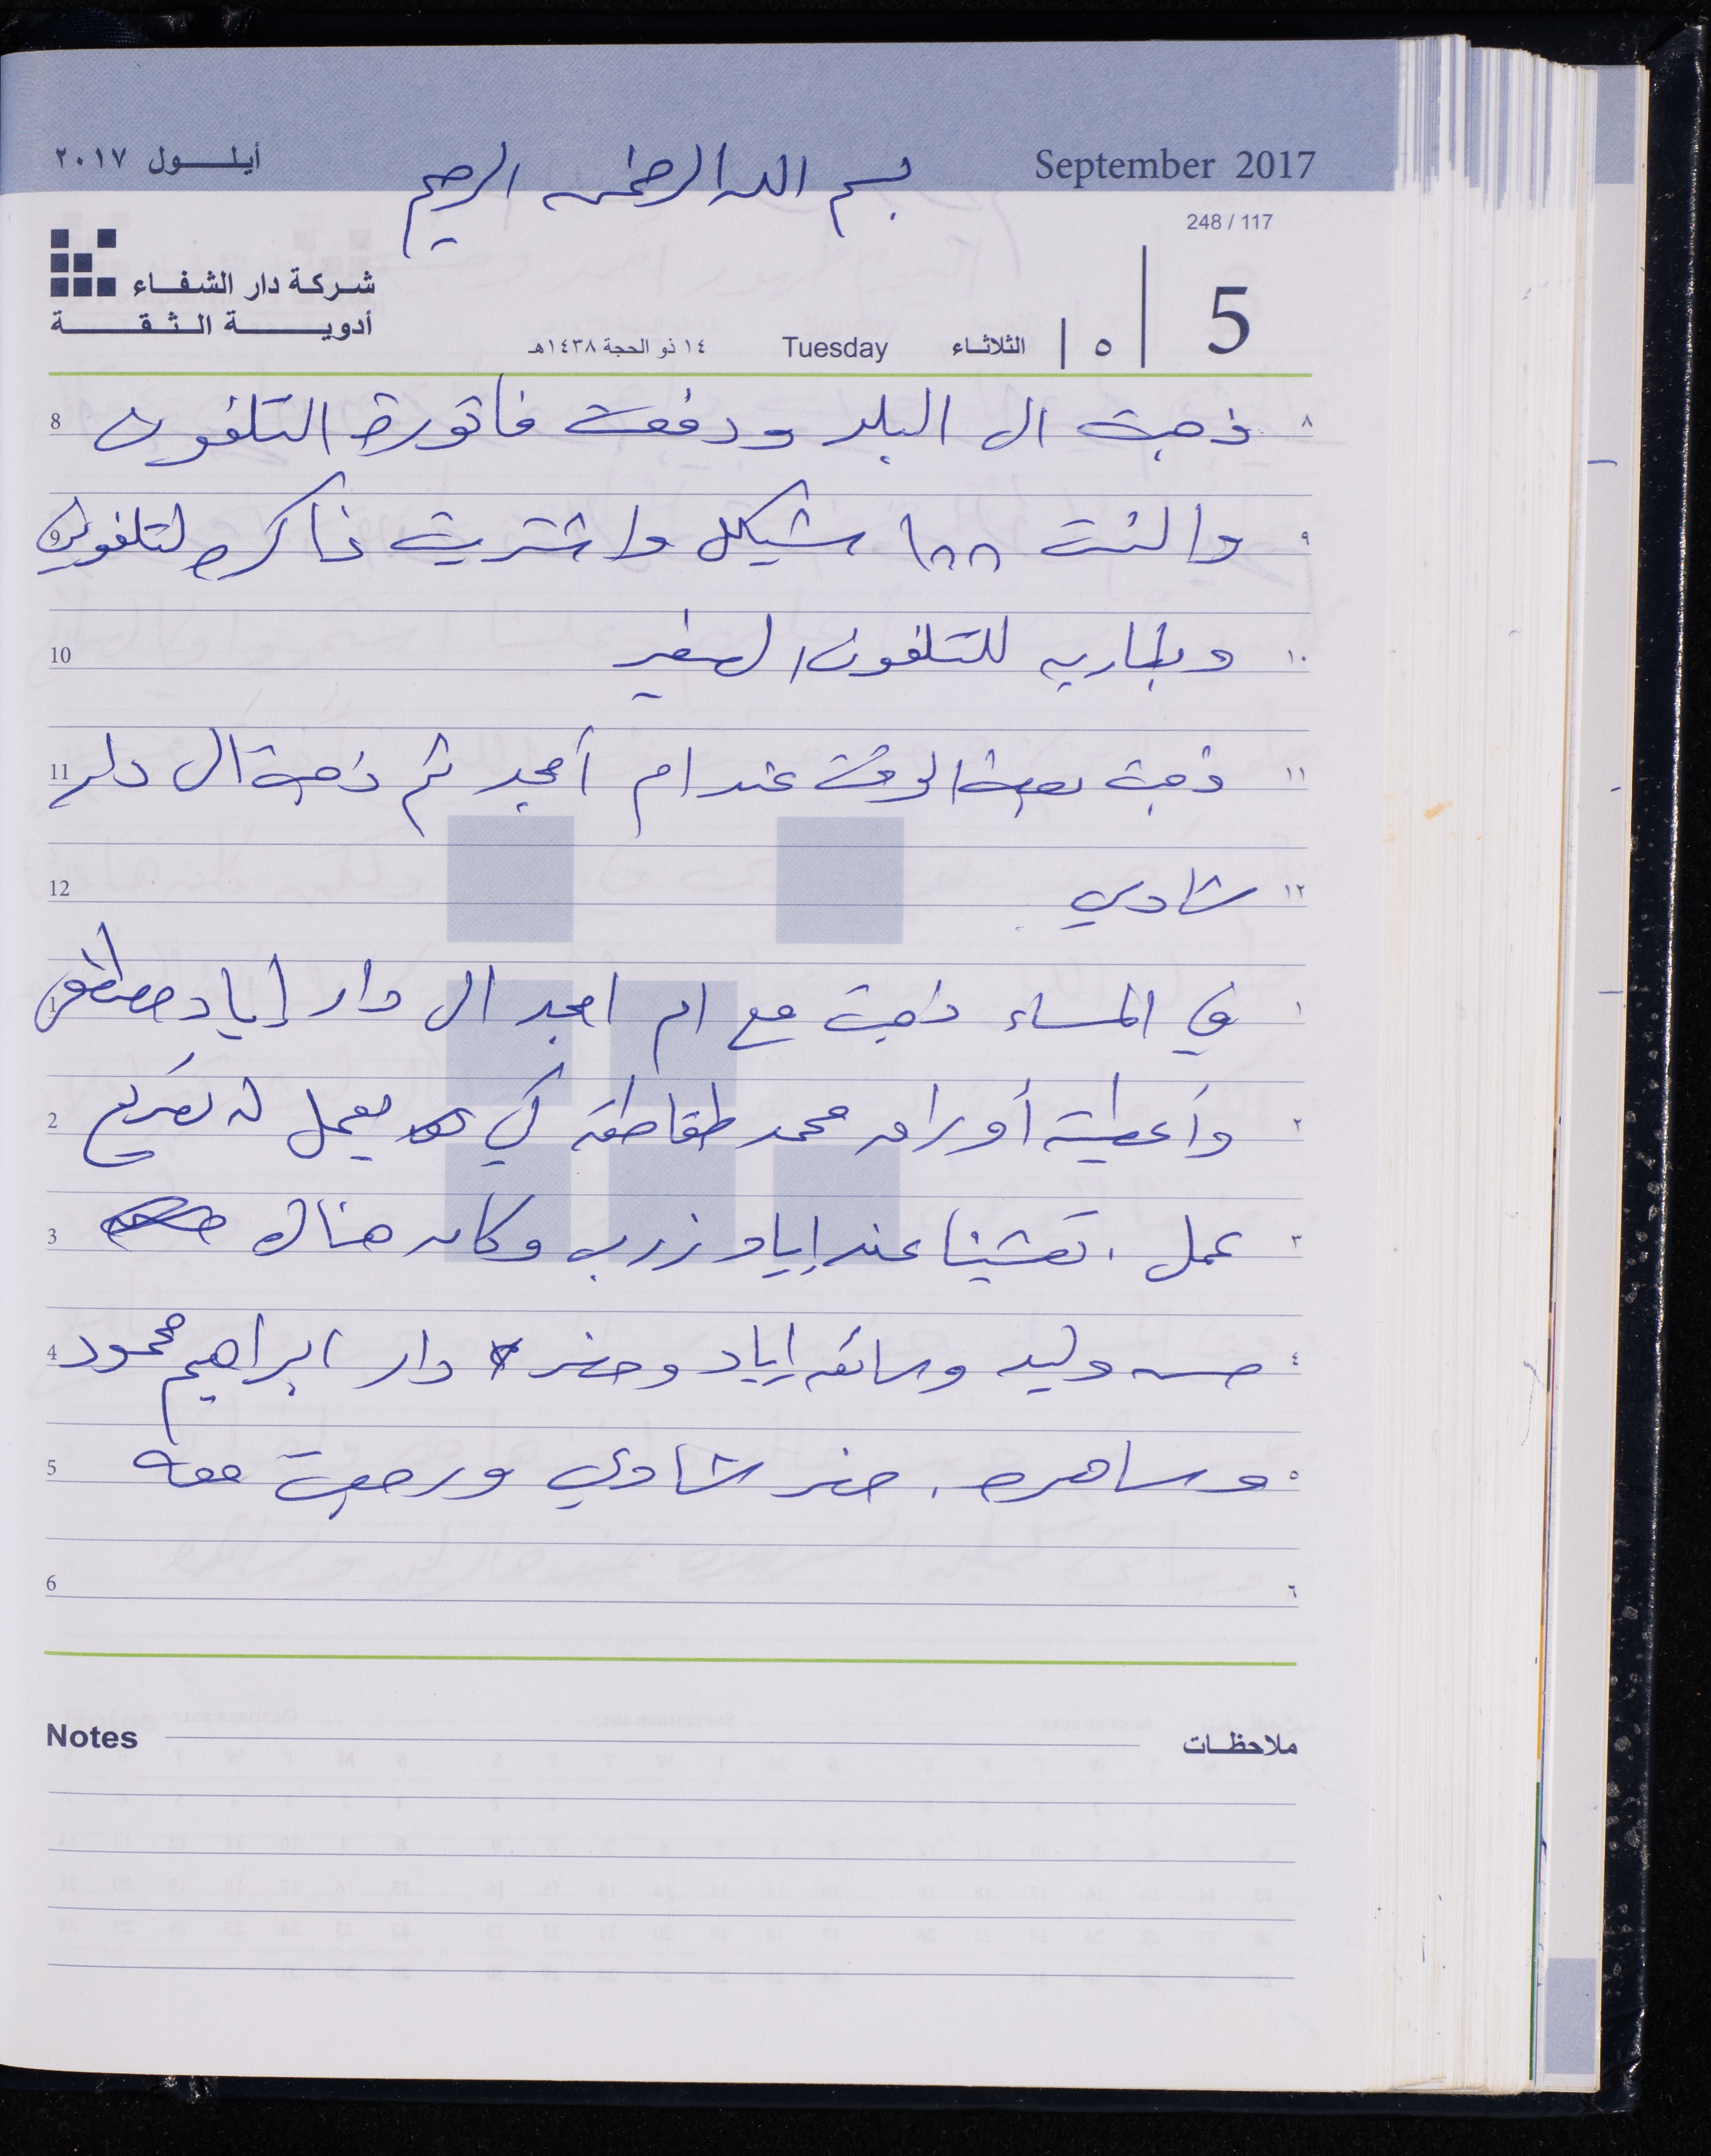 أيلـــول ٢٠١٧
September 2017
بسم الله الرحمن الرحيم
248 / 117
شركة دار الشفاء
أدويـــة الـثـقـــة
5
٥
الثلاثاء
Tuesday
١٤ ذو الحجة ١٤٣٨هـ
٨ ذهبت الى البلد ودفعت فاتورة التلفون 8
٩ والنت ١٨٨ شيكل واشتريت ذاكره لتلفوني 9
١٠ وبطاريه للتلفون الصغير 10
١١ ذهبت بعض الوقت عند ام أمجد ثم ذهبت الى دار 11
١٢ شادي 12
١ في المساء ذهبت مع ام امجد الى دار إياد مصطفى 1
٢ وأعطيته أوراق محمد طقاطقه كي يعمل له تصريح 2
٣ عمل . تعشينا عند إياد زرب وكان هناك 3
٤ حسن وليد وسائق إياد وحضر دار ابراهيم محمود 4
٥ وساهره . حضر شادي ورجعت معه 5
٦ 6
Notes
ملاحظات